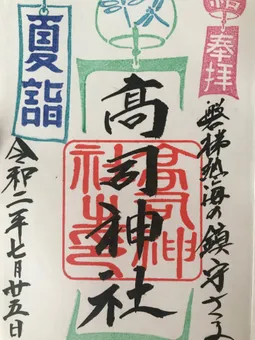 奉拝
磐梯熱海の鎮守さま
高司神社
夏詣
令和二年七月廿五日